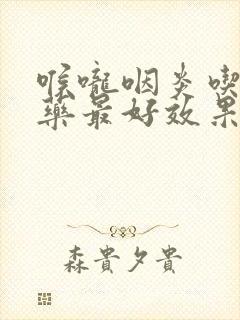 喉嚨咽炎喫
藥最好效果
森貴夕貴